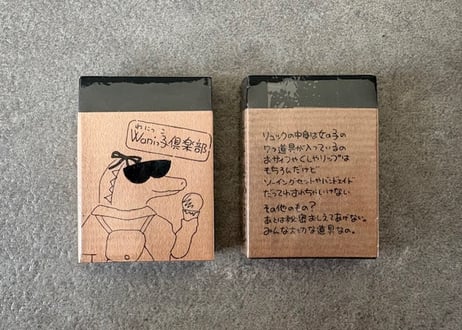 わにっこ
Waniっ子倶楽部
リュックの中身は女の子の
7つ道具が入っているの
おサイフやくしやリップは
もちろんだけど
ソーイングセットやバンドエイド
だってわすれちゃいけない
その他のもの?
あとは秘密おしえてあげない。
みんな大切な道具なの。